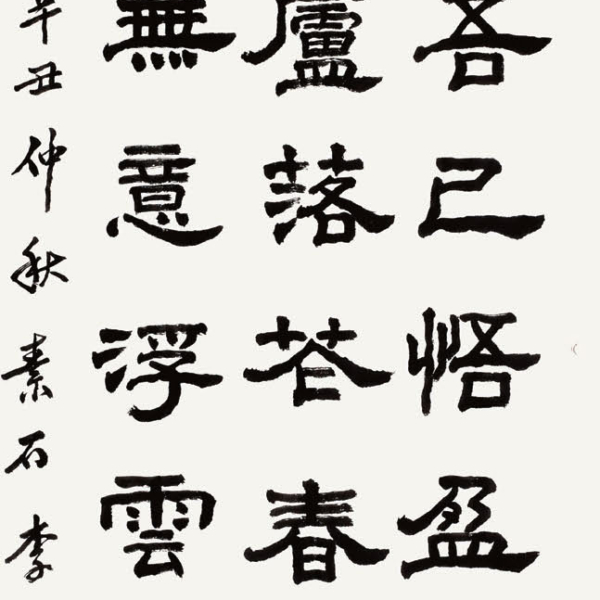 吾已悟盈
廬落花春
無意浮雲
辛丑仲秋素石李